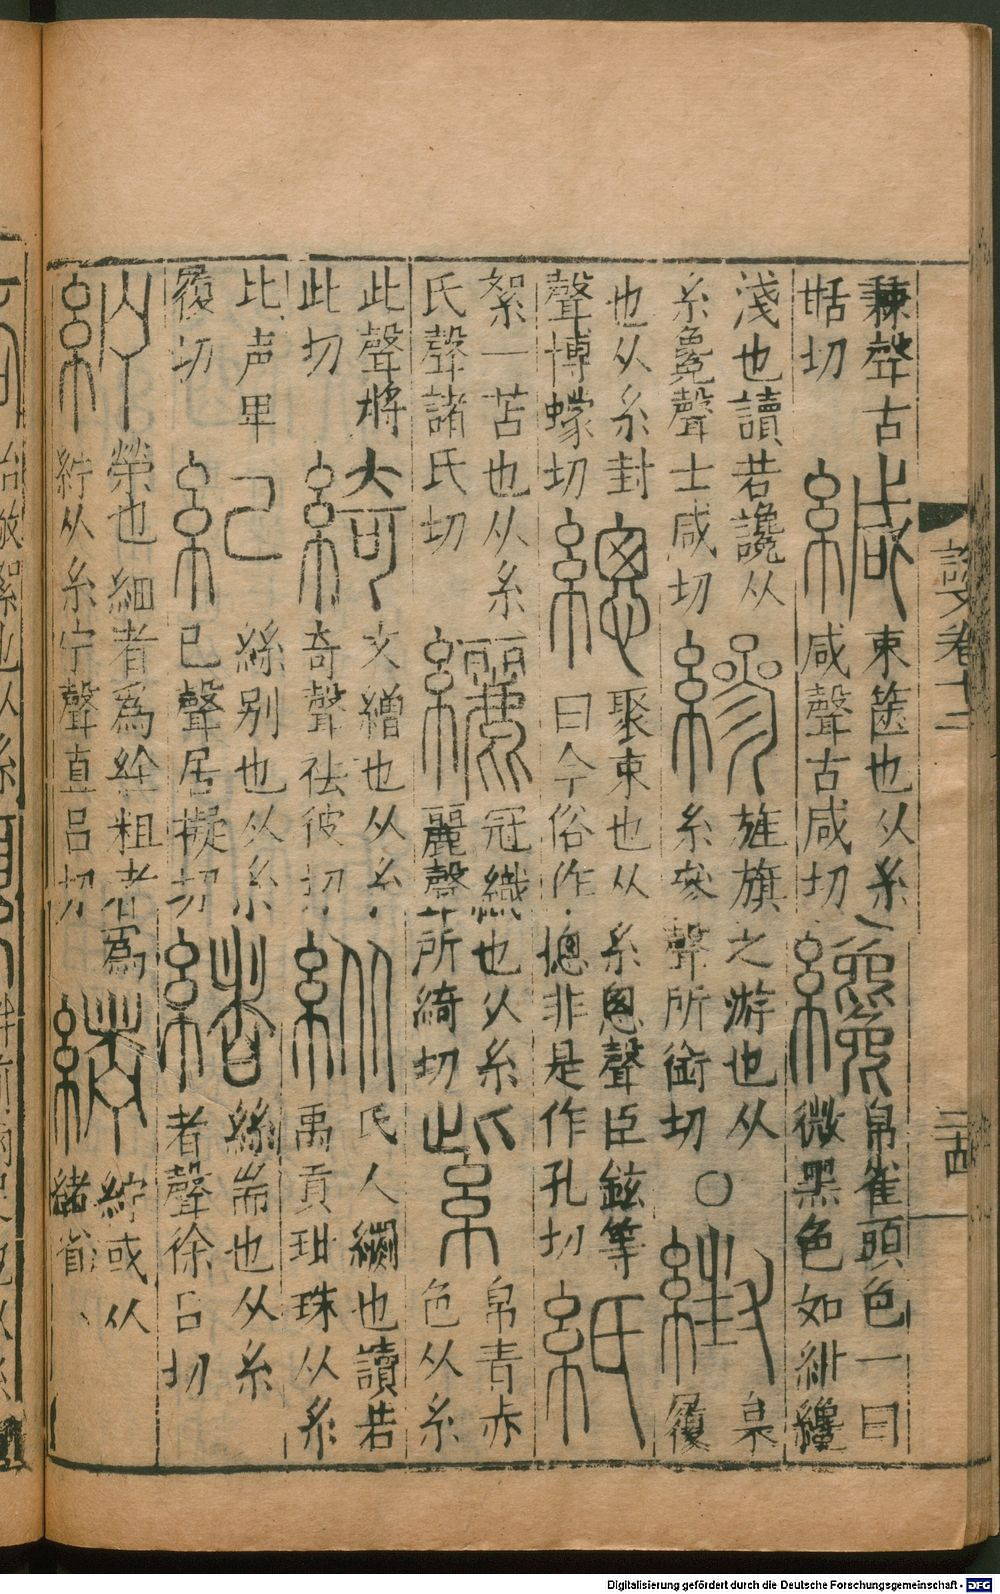 兼聲古甜切 緘 束篋也从糸咸聲古咸切 纔 帛雀頭色一曰微黑色如紺纔
淺也讀若讒从糸毚聲士咸切 縿 旌旗之游也从糸參聲所銜切 〇 𦂌 枲履
也从糸封聲博蠓切 總 聚束也从糸悤聲臣鉉等曰今俗作摠非是作孔切 紙
絮一苫也从糸氏聲諸氏切 纚 冠織也从糸麗聲所綺切 紫 帛青赤色从糸
此聲將此切 綺 文繒也从糸奇聲祛彼切 紕 氐人繝也讀若禹貢玭珠从糸
比声卑履切 紀 絲別也从糸己聲居擬切 緒 絲耑也从糸者聲徐呂切
紵 榮也細者為絟粗者為紵从糸宁聲直呂切 紵或从緒省
說文卷十二
二十四
Digitalisierung gefördert durch die Deutsche Forschungsgemeinschaft - DFG